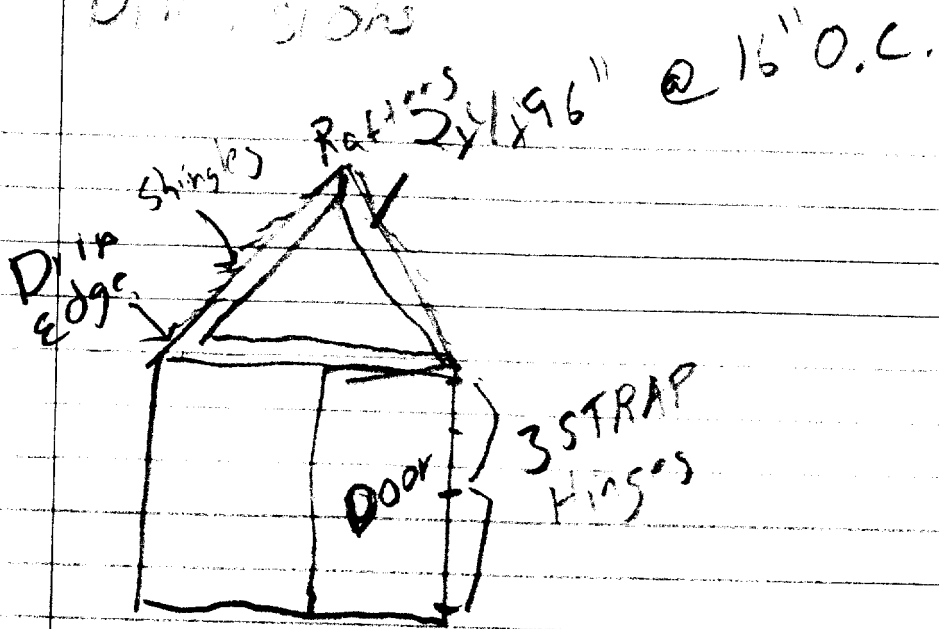 Rafters 2x4x96" @ 16" O.C.
Shingles
Drip
Edge
3 STRAP
Hinges
Door